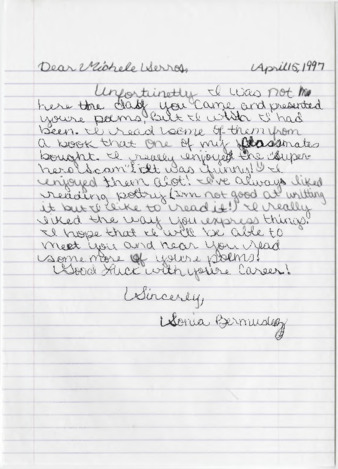 Dear Michele Serros, April 15, 1997
Unfortunetly I was not
here the day you came and presented
youre poems, but I wish I had
been. I read some of them from
a book that one of my classmates
bought. I really enjoyed the Super-
hero Scam! It was funny! I
enjoyed them alot! I've always liked
reading poetry (I'm not good at writing
it but I like to read it!) I really
liked the way you express things!
I hope that I will be able to
meet you and hear you read
some more of youre poems!
Good luck with youre career!
Sincerely,
Sonia Bermudez